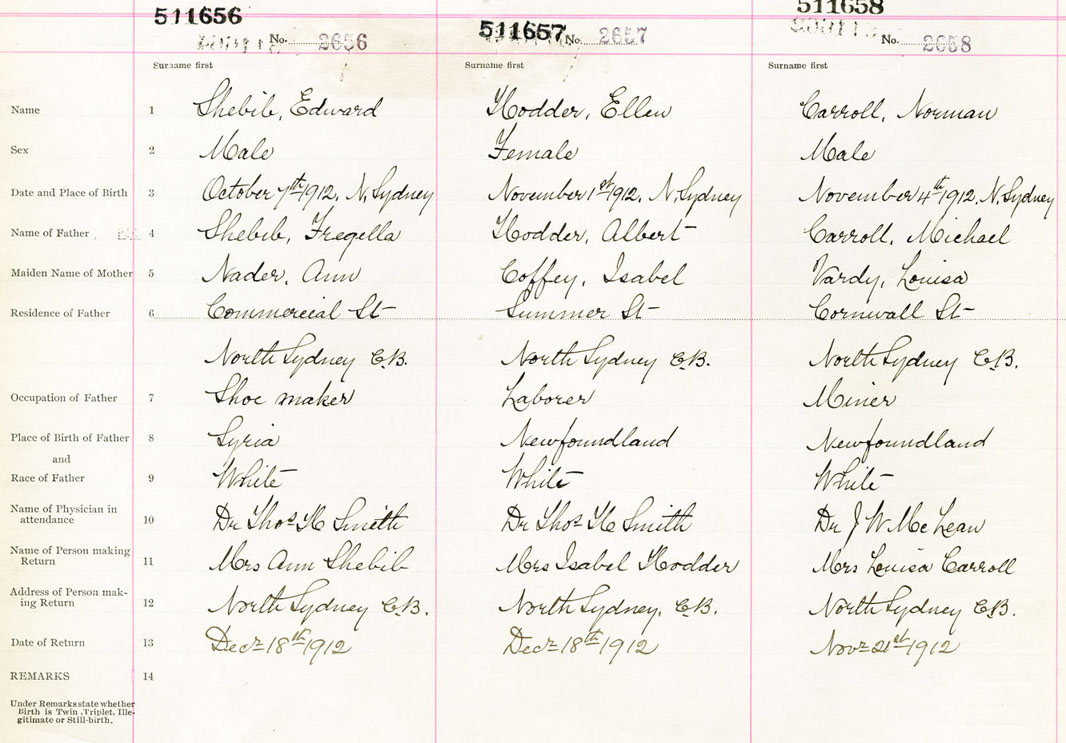 511656 511657 511658
No. 2656 No. 2657 No. 2658
Surname first Surname first Surname first
Name 1 Shebib, Edward Hodder, Ellen Carroll, Norman
Sex 2 Male Female Male
Date and Place of Birth 3 October 7th 1912, N. Sydney November 1st 1912, N. Sydney November 4th 1912, N. Sydney
Name of Father 4 Shebib, Fregella Hodder, Albert Carroll, Michael
Maiden Name of Mother 5 Nader, Ann Coffey, Isabel Vardy, Louisa
Residence of Father 6 Commercial St Summer St Cornwall St
North Sydney C.B. North Sydney C.B. North Sydney C.B.
Occupation of Father 7 Shoe maker Laborer Miner
Place of Birth of Father 8 Syria Newfoundland Newfoundland
and
Race of Father 9 White White White
Name of Physician in
attendance 10 Dr Thos H Smith Dr Thos H Smith Dr J W McLean
Name of Person making
Return 11 Mrs Ann Shebib Mrs Isabel Hodder Mrs Louisa Carroll
Address of Person mak-
ing Return 12 North Sydney C.B. North Sydney, C.B. North Sydney C.B.
Date of Return 13 Decr 18th 1912 Decr 18th 1912 Novr 21st 1912
REMARKS 14
Under Remarks state whether
Birth is Twin, Triplet, Ille-
gitimate or Still-birth.